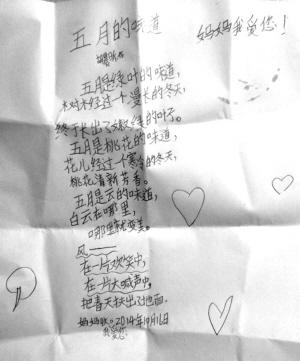 五月的味道
妈妈我爱您!
五月是绿叶的味道,
大树经过一个漫长的冬天,
终于长出了嫩绿的叶子。
五月是桃花的味道,
花儿经过一个寒冷的冬天,
桃花清新芳香。
五月是云的味道,
白云在哪里,
哪里就变美。
风——
在一片欢笑中,
在一片大喊声中,
把春天扶出了地面。
妈妈 2014年10月16日
我爱您